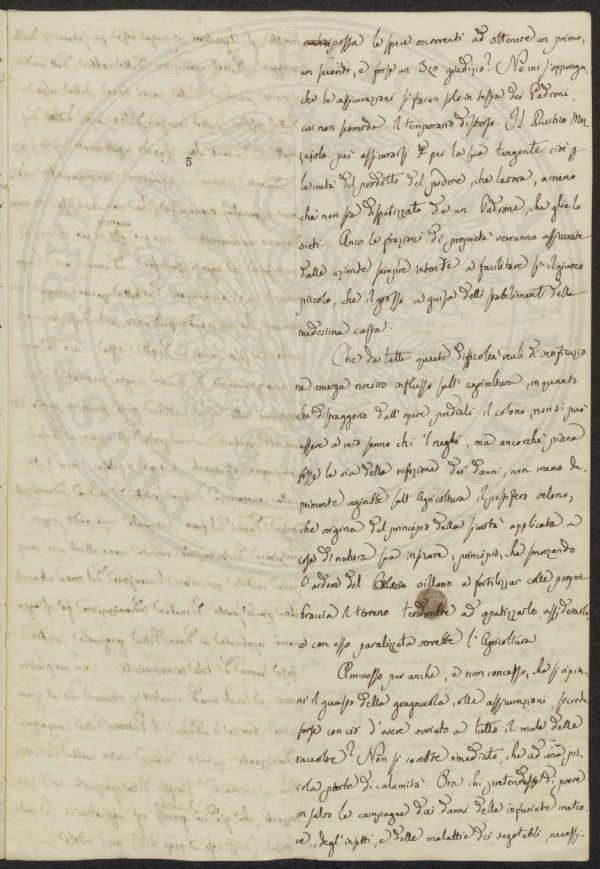 possa le spese occorrenti ad ottenere un primo,
un secondo, e forse un 3zo giudizio? Ne mi s'opponga
che le assicurazioni si faran solo in testa dei Padroni,
cui non scomoda il temporario disborso. Il Rustico Mez
zajolo può assicurarsi per la sua tangente cioè
la metà del prodotto del podere, che lavora, a meno
che non sia dispotizzato da un Padrone, che glie lo
vieti. Anco le frazioni di proprietà verranno assicurate
dalle aziende sempre intente a facilitare sì il giuoco
piccolo, che il grosso a guisa delli stabilimenti della
medesima cassa.
5
Che da tutte queste difficoltà reali di verificazio
ne emerga nocivo influsso sull'agricoltura, in quanto
che distraggono dall'opere prediali il colono, non vi può
essere a mio senno chi 'l neghi, ma ancorchè piana
fosse la via della refezione dei danni, non meno de
primente agirebbe sull'Agricoltura il pestifero veleno,
che origina dal principio della sicurtà applicata a
cose di natura sua insicure, principio, che smorzando
l'ardore del villano a fertilizzar colle proprie
braccia il terreno tenderebbe ad apatizzarlo, assiderarlo
e con esso paralizzata verrebbe l'Agricoltura.
Ammesso pur anche, e non concesso, che si ripia
ni il guasto della gragnuola colle assicurazioni, si crede
forse con ciò d'avere ovviato a tutto il male delle
raccolte? Non si sarebbe rimediato, che ad una pic
cola parte di calamità. Ora chi pretendesse di porre
in salvo le campagne dai danni delle infuriate meteo
re, degl'insetti, e delle malattie dei vegetabili, necessi-